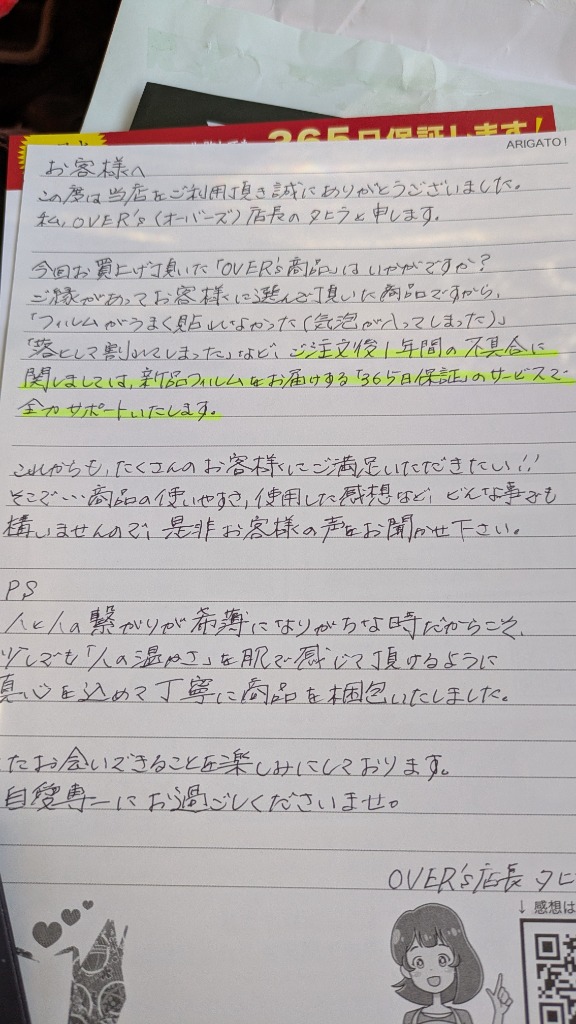 365日保証します!
ARIGATO!
お客様へ
この度は当店をご利用頂き誠にありがとうございました。
私、OVER's(オーバーズ)店長のタヒラと申します。
今回お買上げ頂いた「OVER's商品」はいかがですか?
ご縁があってお客様に選んで頂いた商品ですから、
「フィルムがうまく貼れなかった(気泡が入ってしまった)」
「落として割れてしまった」など、ご注文後1年間の不具合に
関しましては、新品フィルムをお届けする「365日保証」のサービスで
全力サポートいたします。
これからも、たくさんのお客様にご満足いただきたい!!
そこで…商品の使いやすさ、使用した感想など、どんな事でも
構いませんので、是非お客様の声をお聞かせ下さい。
PS
人と人の繋がりが希薄になりがちな時だからこそ、
少しでも「人の温かさ」を肌で感じて頂けるように
真心を込めて丁寧に商品を梱包いたしました。
たお会いできることを楽しみにしております。
自愛専一にお過ごしくださいませ。
OVER's店長 タヒ
↓感想は